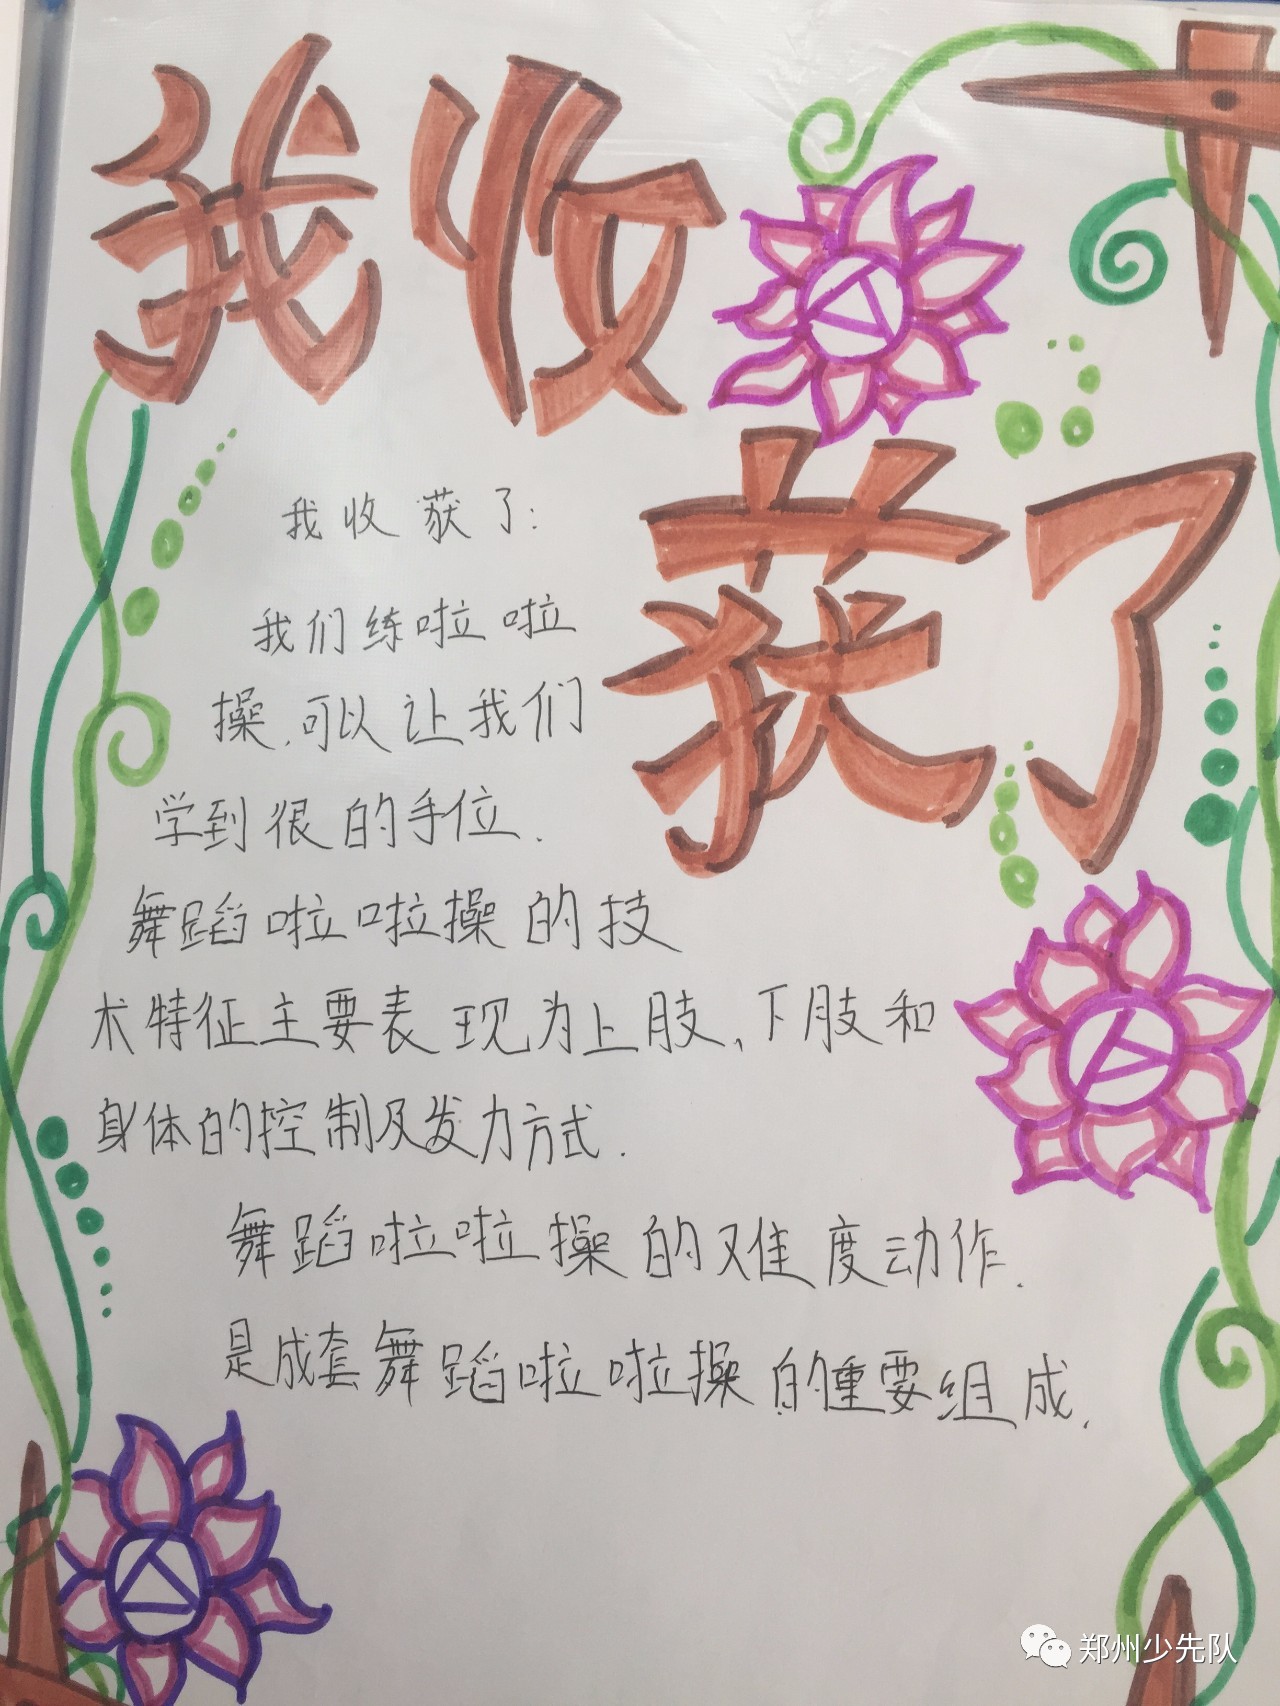 我收
获了
我收获了:
我们练啦啦
操,可以让我们
学到很的手位.
舞蹈啦啦操的技
术特征主要表现为上肢、下肢和
身体的控制及发力方式.
舞蹈啦啦操的难度动作.
是成套舞蹈啦啦操的重要组成.
郑州少先队